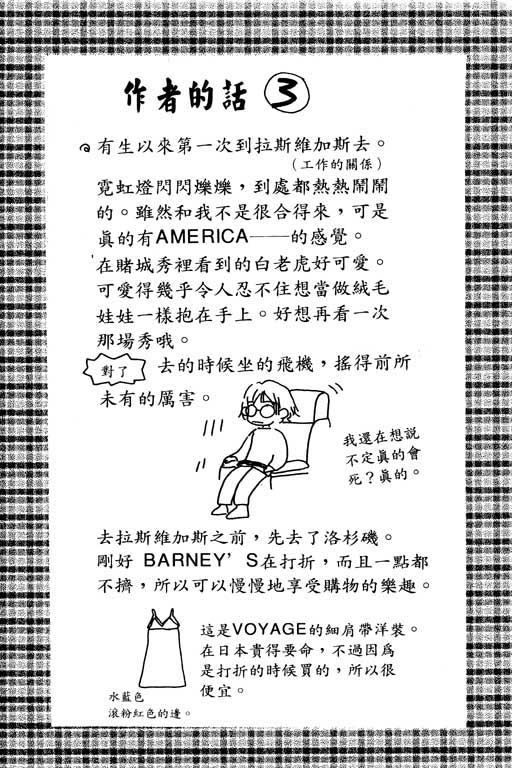 作者的話 ③
有生以來第一次到拉斯維加斯去。
（工作的關係）
霓虹燈閃閃爍爍，到處都熱熱鬧鬧
的。雖然和我不是很合得來，可是
眞的有AMERICA──的感覺。
在賭城秀裡看到的白老虎好可愛。
可愛得幾乎令人忍不住想當做絨毛
娃娃一樣抱在手上。好想再看一次
那場秀哦。
對了
去的時候坐的飛機，搖得前所
未有的厲害。
我還在想說
不定眞的會
死？眞的。
去拉斯維加斯之前，先去了洛杉磯。
剛好 BARNEY'S在打折，而且一點都
不擠，所以可以慢慢地享受購物的樂趣。
這是VOYAGE的細肩帶洋裝。
在日本貴得要命，不過因爲
是打折的時候買的，所以很
便宜。
水藍色
滾粉紅色的邊。